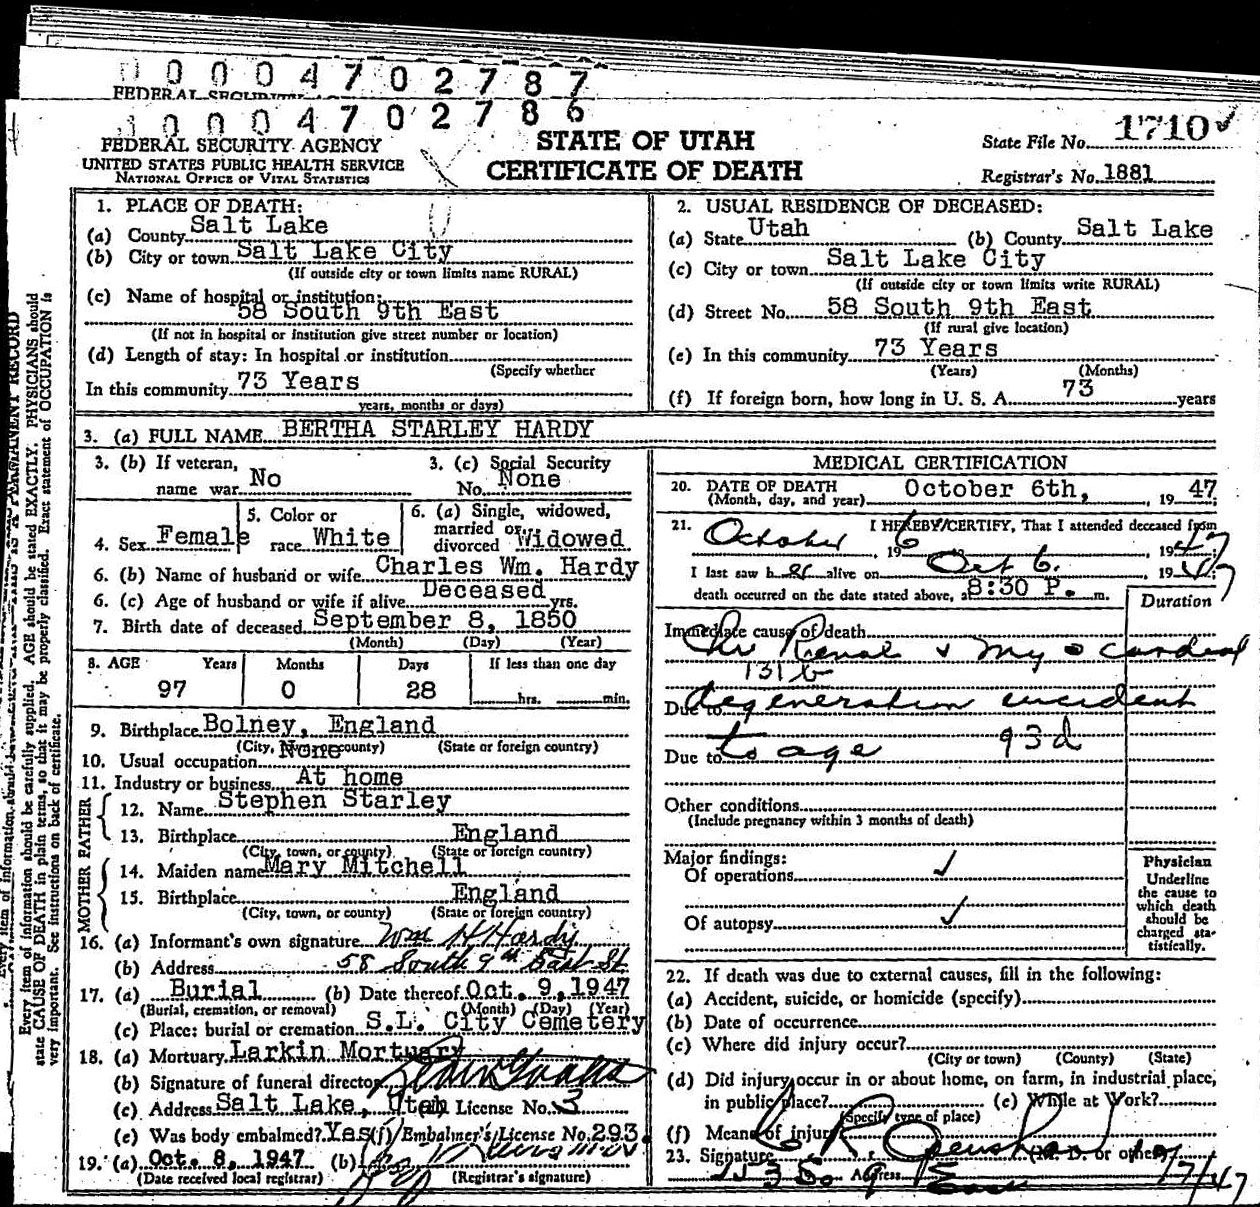 0 0 0 4 7 0 2 7 8 7
FEDERAL SECURITY
0 0 0 4 7 0 2 7 8 6
FEDERAL SECURITY AGENCY
UNITED STATES PUBLIC HEALTH SERVICE
NATIONAL OFFICE OF VITAL STATISTICS
STATE OF UTAH
CERTIFICATE OF DEATH
State File No. 1710
Registrar's No. 1881
1. PLACE OF DEATH:
(a) County Salt Lake
(b) City or town Salt Lake City
(If outside city or town limits name RURAL)
(c) Name of hospital or institution:
58 South 9th East
(If not in hospital or institution give street number or location)
(d) Length of stay: In hospital or institution
(Specify whether
In this community 73 Years
years, months or days)
2. USUAL RESIDENCE OF DECEASED:
(a) State Utah (b) County Salt Lake
(c) City or town Salt Lake City
(If outside city or town limits write RURAL)
(d) Street No. 58 South 9th East
(If rural give location)
(e) In this community 73 Years
(Years) (Months)
(f) If foreign born, how long in U. S. A. 73 years
3. (a) FULL NAME BERTHA STARLEY HARDY
3. (b) If veteran, name war No
3. (c) Social Security No. None
4. Sex Female
5. Color or race White
6. (a) Single, widowed, married or divorced Widowed
6. (b) Name of husband or wife Charles Wm. Hardy
6. (c) Age of husband or wife if alive Deceased yrs.
7. Birth date of deceased September 8, 1850
(Month) (Day) (Year)
8. AGE Years Months Days If less than one day
97 0 28 hrs. min.
9. Birthplace Bolney, England
(City, town, or county) (State or foreign country)
10. Usual occupation None
11. Industry or business At home
FATHER
12. Name Stephen Starley
13. Birthplace England
(City, town, or county) (State or foreign country)
MOTHER
14. Maiden name Mary Mitchell
15. Birthplace England
(City, town, or county) (State or foreign country)
16. (a) Informant's own signature Wm H Hardy
(b) Address 58 South 9th East St
17. (a) Burial (b) Date thereof Oct. 9, 1947
(Burial, cremation, or removal) (Month) (Day) (Year)
(c) Place: burial or cremation S.L. City Cemetery
18. (a) Mortuary Larkin Mortuary
(b) Signature of funeral director
(c) Address Salt Lake, Utah (d) License No. 3
(e) Was body embalmed? Yes (f) Embalmer's License No. 293
19. (a) Oct. 8, 1947 (b)
(Date received local registrar) (Registrar's signature)
MEDICAL CERTIFICATION
20. DATE OF DEATH October 6th, 1947
(Month, day, and year)
21. I HEREBY CERTIFY, That I attended deceased from
October 6, 1947
I last saw her alive on Oct 6. 1947
death occurred on the date stated above, a 8:30 P. m.
Duration
Immediate cause of death
Chr Renal & Myocardial
131b
Due to degeneration incident
Due to to age 93d
Other conditions
(Include pregnancy within 3 months of death)
Major findings:
Of operations ✓
Of autopsy ✓
Physician
Underline
the cause to
which death
should be
charged sta-
tistically.
22. If death was due to external causes, fill in the following:
(a) Accident, suicide, or homicide (specify)
(b) Date of occurrence
(c) Where did injury occur?
(City or town) (County) (State)
(d) Did injury occur in or about home, on farm, in industrial place,
in public place? (e) While at Work?
(Specify type of place)
(f) Means of injury
23. Signature (M. D. or other)
Address East
Every item of information should be carefully supplied. AGE should be stated EXACTLY. PHYSICIANS should
state CAUSE OF DEATH in plain terms, so that it may be properly classified. Exact statement of OCCUPATION is
very important. See instructions on back of certificate.